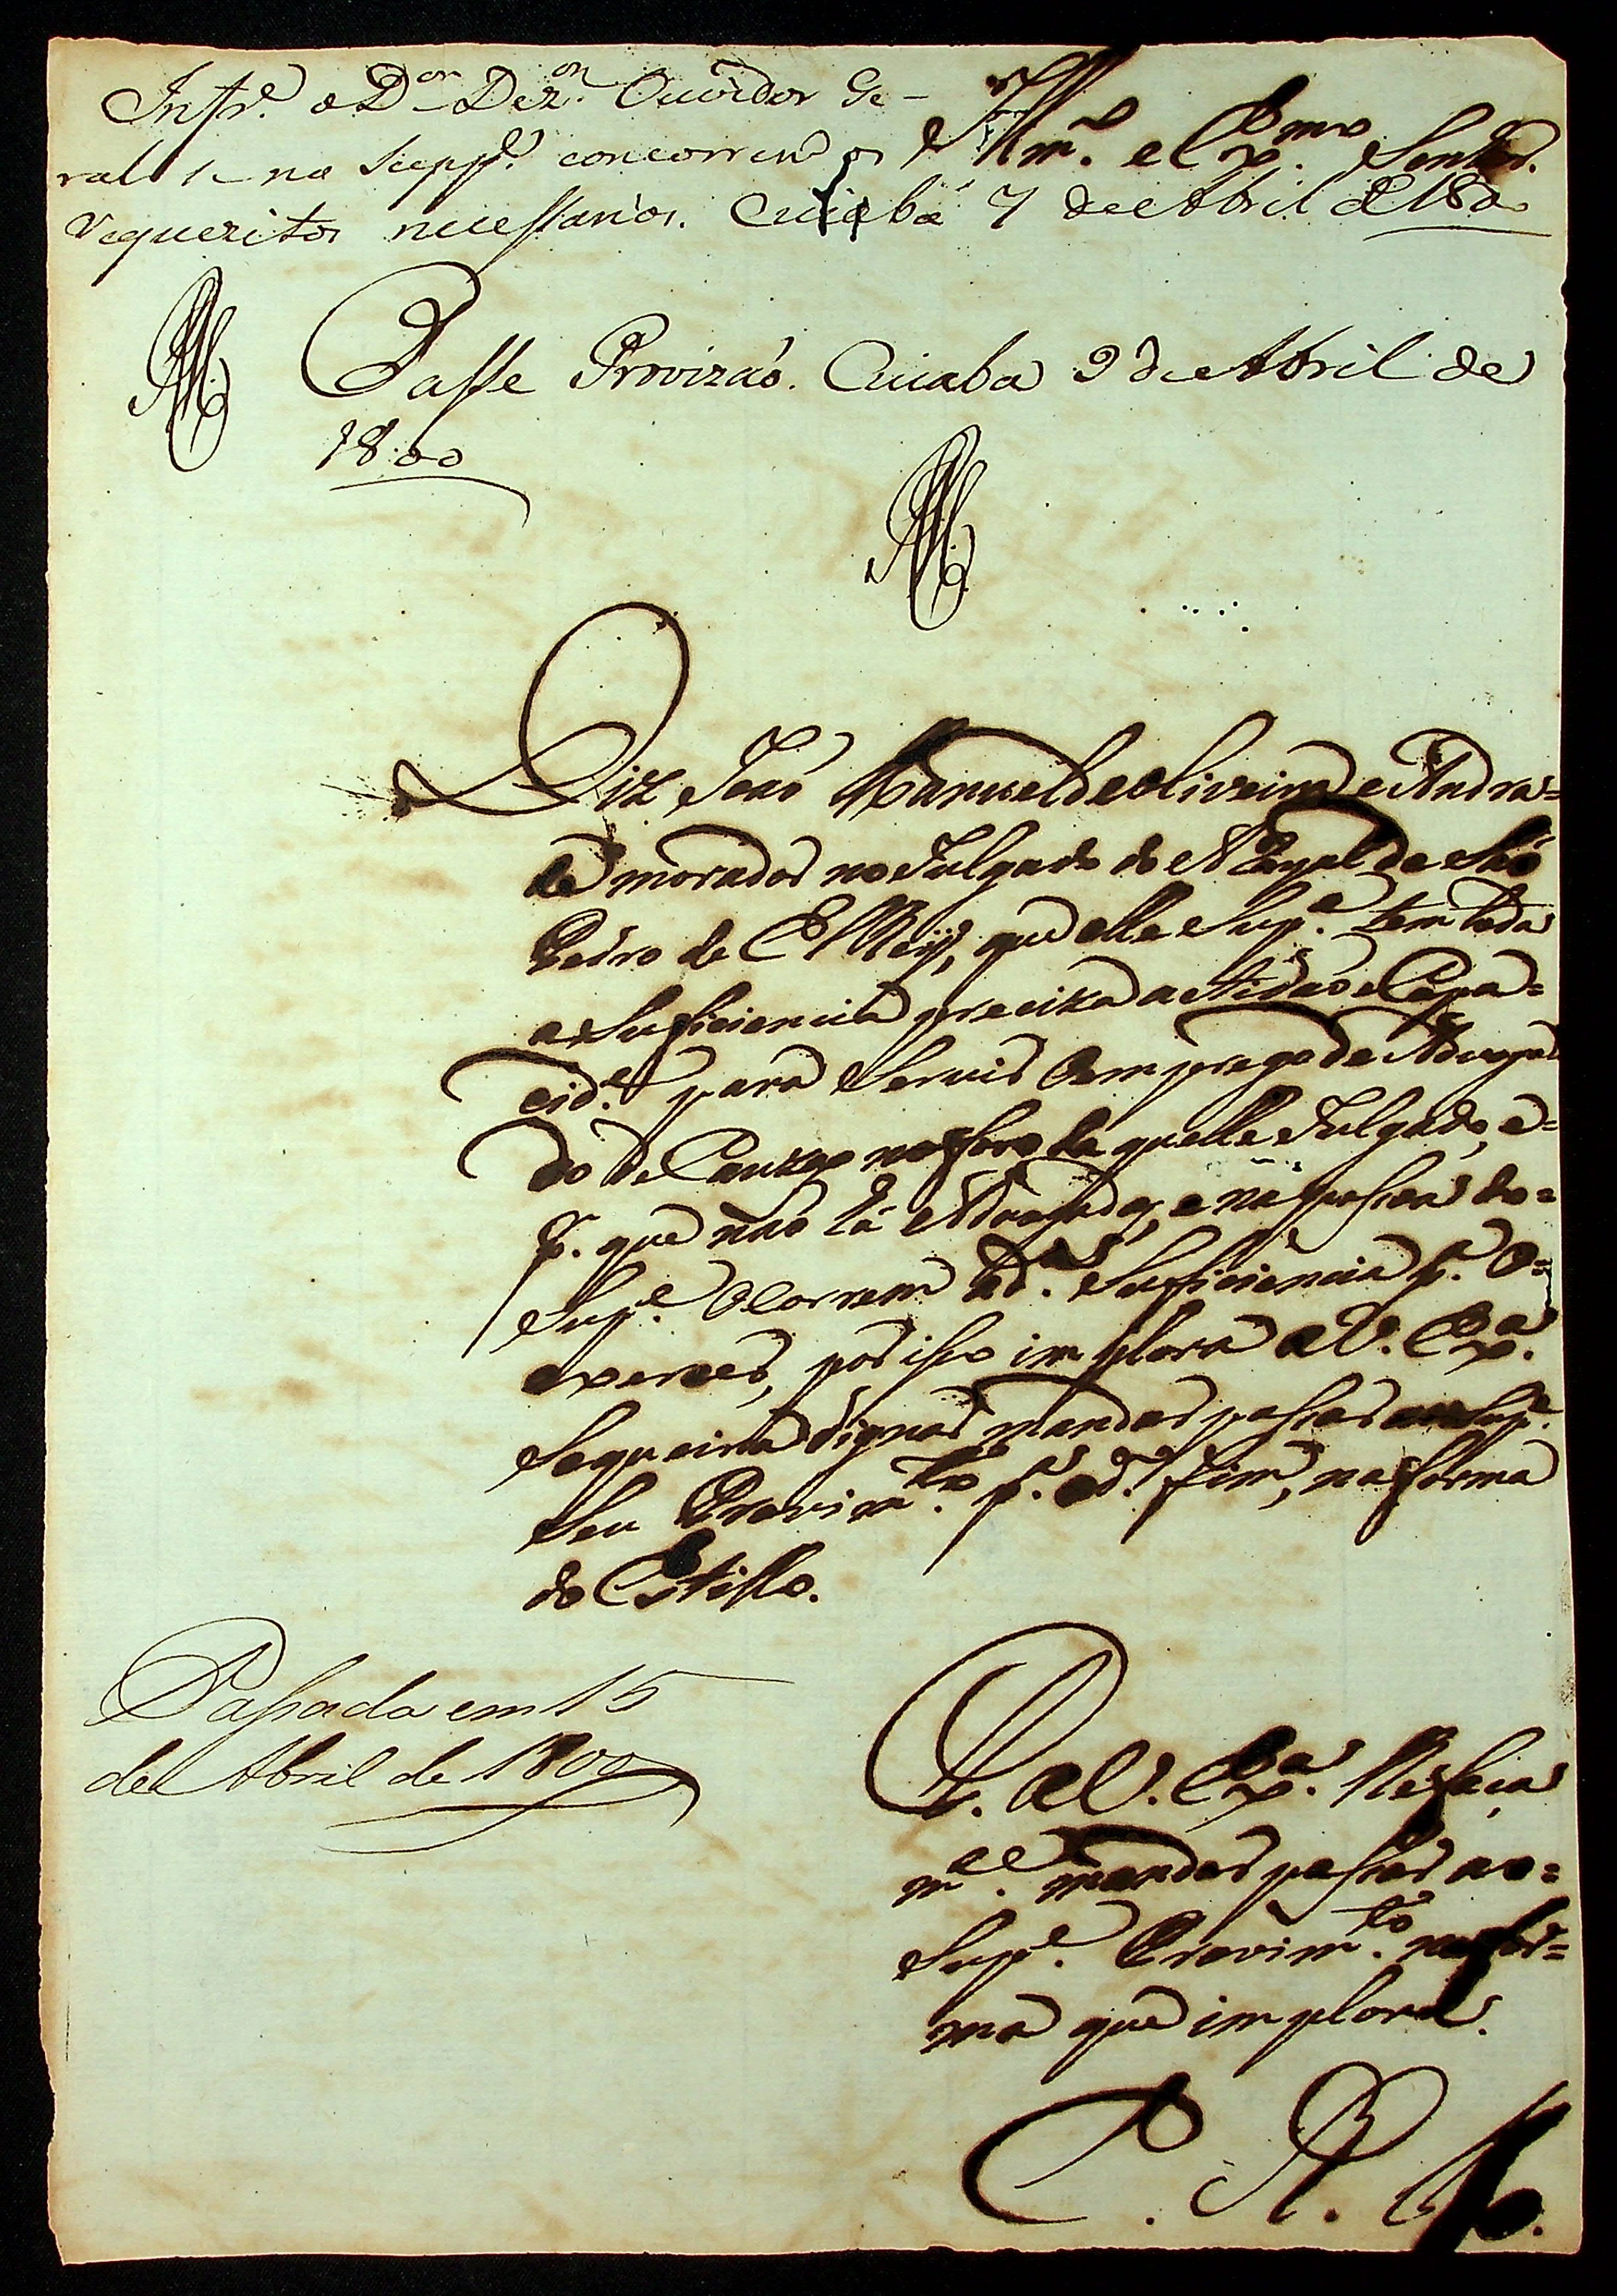 Infr.e o D.or Dez.or Ouvidor Ge-
ral se no Supp.e concorrem os
requezitos necessarios. Cuiabá 7 de Abril de 1800
Ill.mo e Ex.mo Senhor.
Passe Provizaõ. Cuiabá 9 de Abril de
1800
Diz Joaõ Manuel de Oliveira e Andra=
de morador no Julgado do Arrayal de Saõ
Pedro de El Rey, que elle Sup.e tem toda
a Suficiencia preciza actidaõ e Capa=
cid.e para Servir o emprego de Advoga
do de Cauzas no foro da quelle Julgado, e=
p. que naõ há Advogados, e na pessoa do=
Sup.e Ocorrem a d.a Suficiencia p.a o=
exercer, por isso implora a V. Ex.a
Se queira dignar mandar passar ao Sup.e
Seu Provim.to p.a o d.o fim, na forma
do Estillo.
Passada em 15
de Abril de 1800
P. a V. Ex.a lhe faça
m.ce mandar passar ao=
Sup.e Provim.to na for=
ma que implora.
E. R. M.